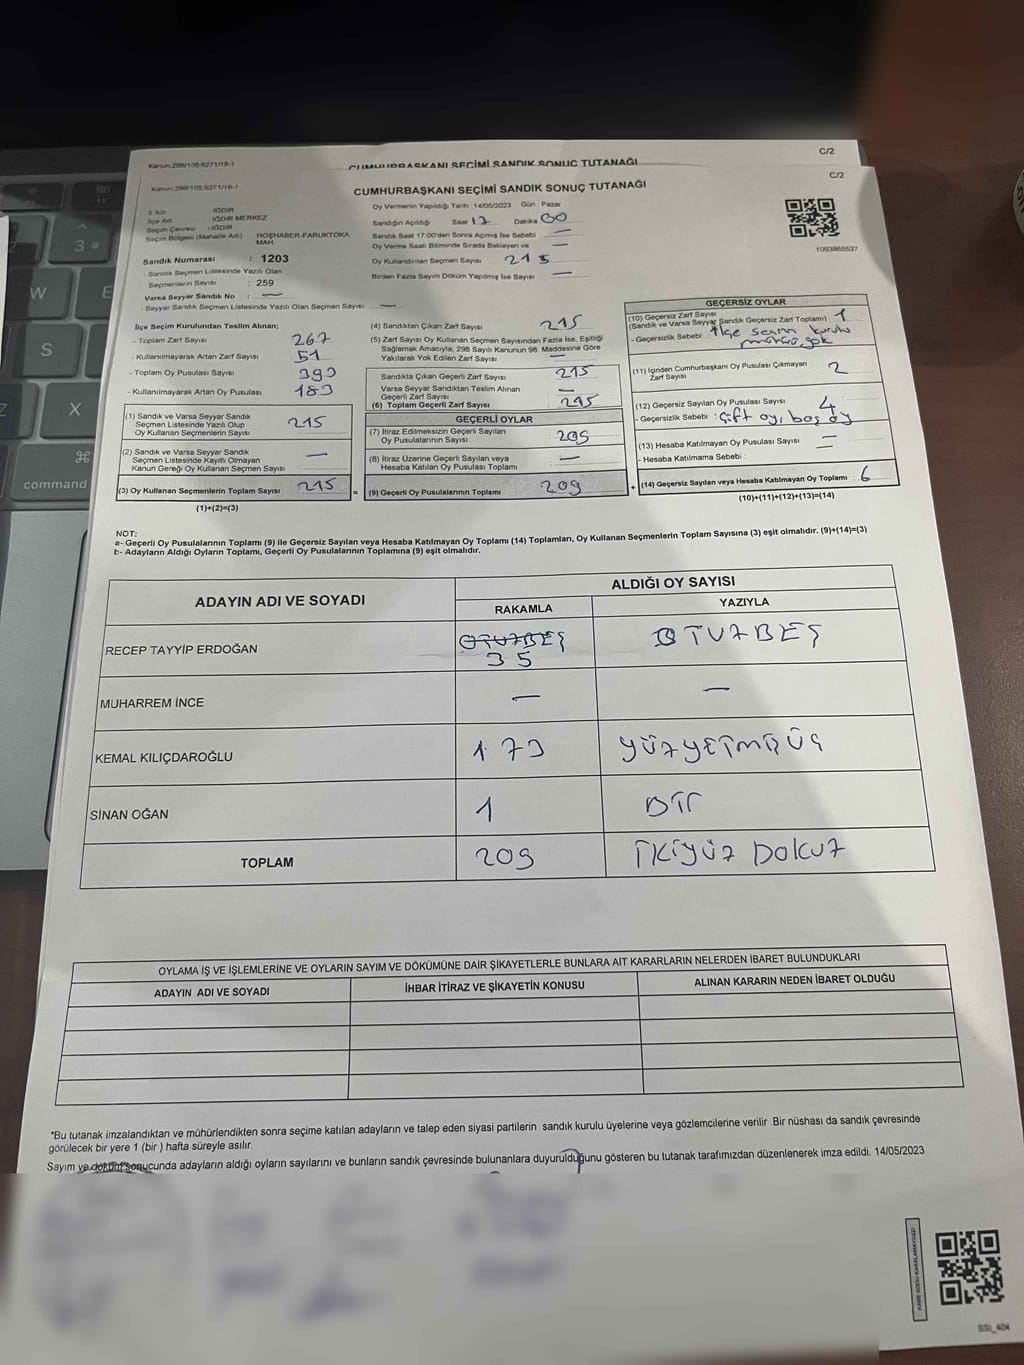 Kanun;298/105;6271/18-1
CUMHURBAŞKANI SEÇİMİ SANDIK SONUÇ TUTANAĞI
C/2
Kanun;298/105;6271/18-1
CUMHURBAŞKANI SEÇİMİ SANDIK SONUÇ TUTANAĞI
C/2
İl Adı IĞDIR
İlçe Adı IĞDIR MERKEZ
Seçim Çevresi : IĞDIR
Seçim Bölgesi (Mahalle Adı) HOŞHABER-FARUKTOKA MAH
Sandık Numarası : 1203
- Sandık Seçmen Listesinde Yazılı Olan
Seçmenlerin Sayısı : 259
Varsa Seyyar Sandık No : —
- Seyyar Sandık Seçmen Listesinde Yazılı Olan Seçmen Sayısı : —
Oy Vermenin Yapıldığı Tarih : 14/05/2023 Gün : Pazar
Sandığın Açıldığı Saat 17 Dakika 00
Sandık Saat 17:00'den Sonra Açımış İse Sebebi —
Oy Verme Saati Bitiminde Sırada Bekleyen ve —
Oy Kullandırılan Seçmen Sayısı 215
Birden Fazla Sayım Döküm Yapılmış İse Sayısı —
1093865537
İlçe Seçim Kurulundan Teslim Alınan;
- Toplam Zarf Sayısı 267
- Kullanılmayarak Artan Zarf Sayısı 51
- Toplam Oy Pusulası Sayısı 393
- Kullanılmayarak Artan Oy Pusulası 183
(1) Sandık ve Varsa Seyyar Sandık
Seçmen Listesinde Yazılı Olup
Oy Kullanan Seçmenlerin Sayısı 215
(2) Sandık ve Varsa Seyyar Sandık
Seçmen Listesinde Kayıtlı Olmayan
Kanun Gereği Oy Kullanan Seçmen Sayısı —
(3) Oy Kullanan Seçmenlerin Toplam Sayısı 215
(1)+(2)=(3)
(4) Sandıktan Çıkan Zarf Sayısı 215
(5) Zarf Sayısı Oy Kullanan Seçmen Sayısından Fazla İse, Eşitliği
Sağlamak Amacıyla; 298 Sayılı Kanunun 98. Maddesine Göre
Yakılarak Yok Edilen Zarf Sayısı —
Sandıkta Çıkan Geçerli Zarf Sayısı 215
Varsa Seyyar Sandıktan Teslim Alınan
Geçerli Zarf Sayısı —
(6) Toplam Geçerli Zarf Sayısı 215
GEÇERLİ OYLAR
(7) İtiraz Edilmeksizin Geçerli Sayılan
Oy Pusulalarının Sayısı 209
(8) İtiraz Üzerine Geçerli Sayılan veya
Hesaba Katılan Oy Pusulası Toplamı —
= (9) Geçerli Oy Pusulalarının Toplamı 209
GEÇERSİZ OYLAR
(10) Geçersiz Zarf Sayısı 1
(Sandık ve Varsa Seyyar Sandık Geçersiz Zarf Toplamı)
- Geçersizlik Sebebi : İlçe seçim kurulu
mührü yok
(11) İçinden Cumhurbaşkanı Oy Pusulası Çıkmayan
Zarf Sayısı 2
(12) Geçersiz Sayılan Oy Pusulası Sayısı 4
- Geçersizlik Sebebi : Çift oy, boş oy
(13) Hesaba Katılmayan Oy Pusulası Sayısı —
- Hesaba Katılmama Sebebi : —
+ (14) Geçersiz Sayılan veya Hesaba Katılmayan Oy Toplamı : 6
(10)+(11)+(12)+(13)=(14)
NOT:
a- Geçerli Oy Pusulalarının Toplamı (9) ile Geçersiz Sayılan veya Hesaba Katılmayan Oy Toplamı (14) Toplamları, Oy Kullanan Seçmenlerin Toplam Sayısına (3) eşit olmalıdır. (9)+(14)=(3)
b- Adayların Aldığı Oyların Toplamı, Geçerli Oy Pusulalarının Toplamına (9) eşit olmalıdır.
ADAYIN ADI VE SOYADI
ALDIĞI OY SAYISI
RAKAMLA YAZIYLA
RECEP TAYYİP ERDOĞAN OTUZBEŞ 35 OTUZBEŞ
MUHARREM İNCE — —
KEMAL KILIÇDAROĞLU 173 YÜZYETMİŞ ÜÇ
SİNAN OĞAN 1 BİR
TOPLAM 209 İKİYÜZ DOKUZ
OYLAMA İŞ VE İŞLEMLERİNE VE OYLARIN SAYIM VE DÖKÜMÜNE DAİR ŞİKAYETLERLE BUNLARA AİT KARARLARIN NELERDEN İBARET BULUNDUKLARI
ADAYIN ADI VE SOYADI İHBAR İTİRAZ VE ŞİKAYETİN KONUSU ALINAN KARARIN NEDEN İBARET OLDUĞU
*Bu tutanak imzalandıktan ve mühürlendikten sonra seçime katılan adayların ve talep eden siyasi partilerin sandık kurulu üyelerine veya gözlemcilerine verilir Bir nüshası da sandık çevresinde
görülecek bir yere 1 (bir ) hafta süreyle asılır.
Sayım ve döküm sonucunda adayların aldığı oyların sayılarını ve bunların sandık çevresinde bulunanlara duyurulduğunu gösteren bu tutanak tarafımızdan düzenlenerek imza edildi. 14/05/2023
KARE KODU KARALAMAYINIZ!
SSL_404
3
#
W
E
S
Z
X
⌘
command